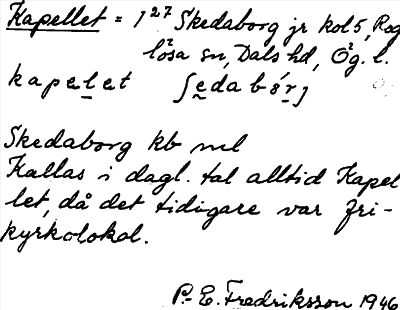 Kapellet = 1²⁷ Skedaborg jr kol 5, Rog
lösa sn, Dals hd, Ög. l.
kapelet ʃedabórj
Skedaborg kb nul
Kallas i dagl. tal alltid Kapel
let, då det tidigare var fri-
kyrkolokal.
P.-E. Fredriksson 1946